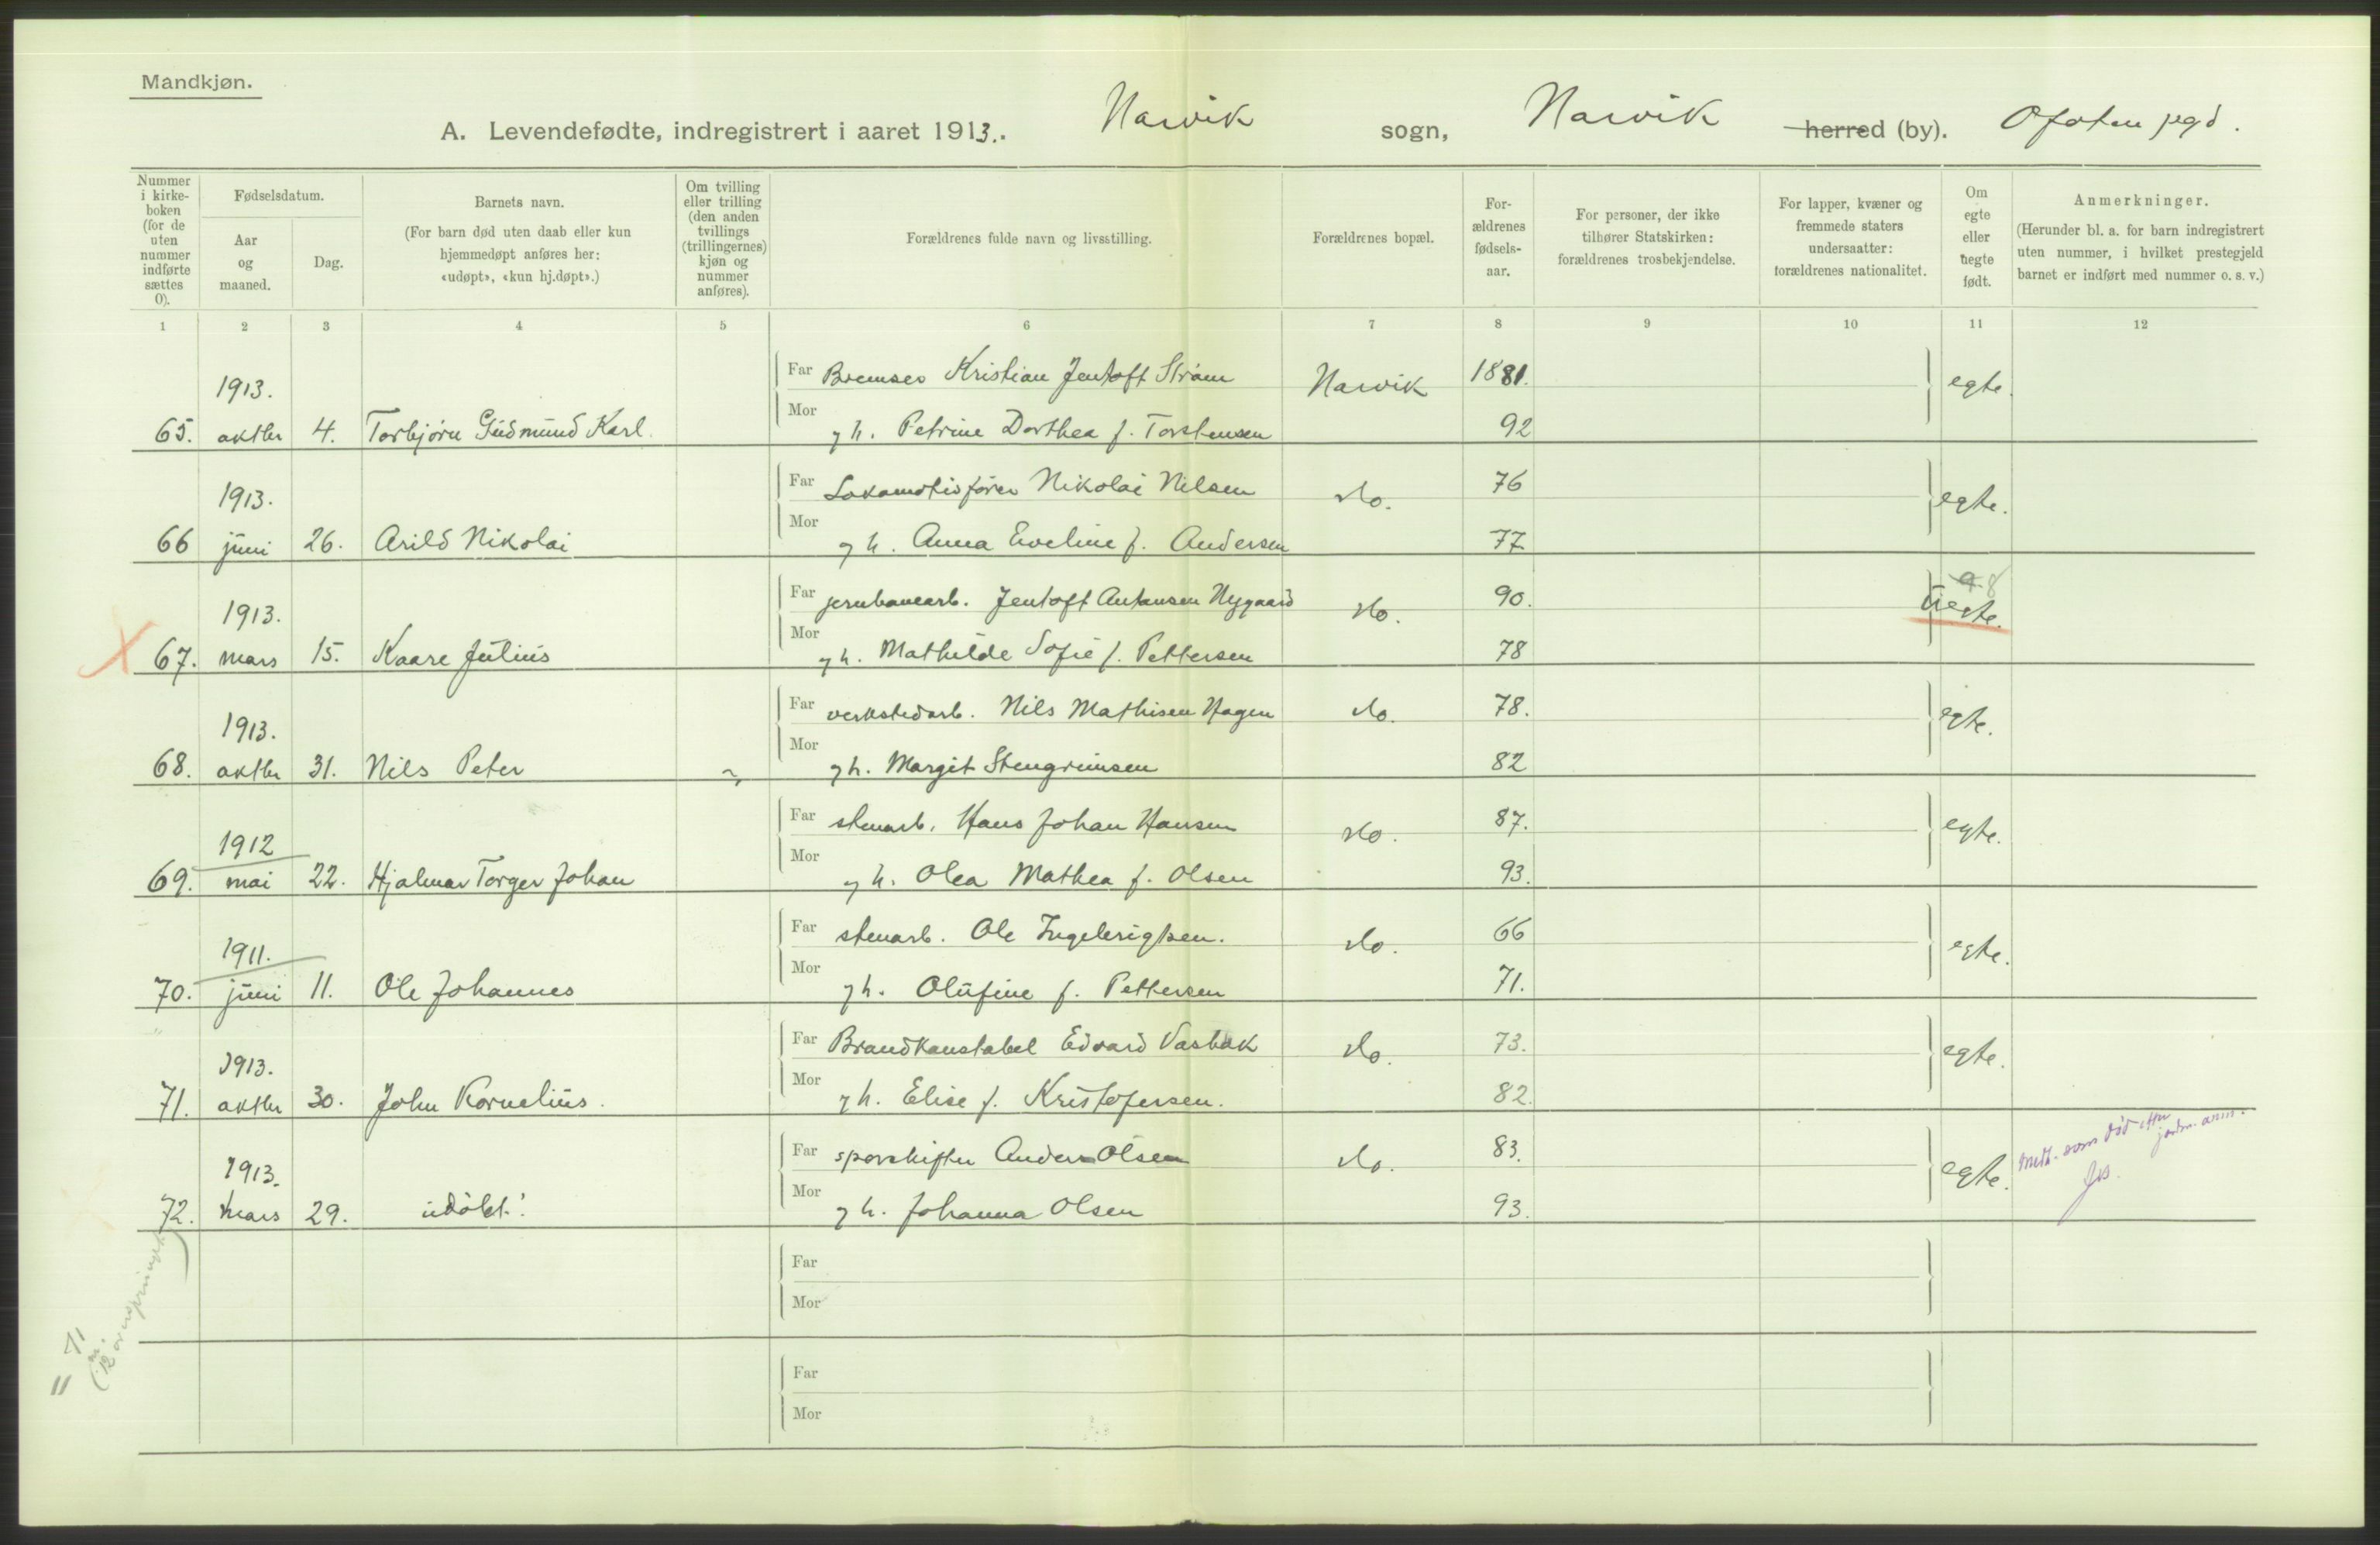 Mandkjøn.
A. Levendefødte, indregistrert i aaret 1913. Narvik sogn, Narvik herred (by). Ofoten pgd.
Nummer i kirke-boken (for de uten nummer indførte sættes 0).
Fødselsdatum.
Aar og maaned.
Dag.
Barnets navn.
(For barn død uten daab eller kun hjemmedøpt anføres her: «udøpt», «kun hj.døpt».)
Om tvilling eller trilling (den anden tvillings (trillingernes) kjøn og nummer anføres).
Forældrenes fulde navn og livsstilling.
Forældrenes bopæl.
For-ældrenes fødsels-aar.
For personer, der ikke tilhører Statskirken: forældrenes trosbekjendelse.
For lapper, kvæner og fremmede staters undersaatter: forældrenes nationalitet.
Om egte eller uegte født.
Anmerkninger.
(Herunder bl. a. for barn indregistrert uten nummer, i hvilket prestegjeld barnet er indført med nummer o. s. v.)
1 2 3 4 5 6 7 8 9 10 11 12
1913. Far Bremser Kristian Jentoft Strøm Narvik 1881. egte.
65. oktbr 4. Torbjørn Gudmund Karl. Mor g h. Petrine Dorthea f. Torstensen 92
1913. Far Lokomotivfører Nikolai Nilsen do. 76 egte.
66 juni 26. Arild Nikolai Mor g h. Anna Eveline f. Andersen 77
1913. Far jernbanearb. Jentoft Antonsen Nygaard do. 90. uegte. 8
67. mars 15. Kaare Julius Mor g h. Mathilde Sofie f. Pettersen 78
1913. Far verkstedarb. Nils Mathisen Hagen do. 78. egte.
68. oktbr 31. Nils Peter Mor g h. Margit Stengrimsen 82
1912 Far stenarb. Hans Johan Hansen do. 87. egte.
69. mai 22. Hjalmar Torger Johan Mor g h. Olea Mathea f. Olsen 93.
1911. Far stenarb. Ole Ingebrigtsen. do. 66 egte.
70. juni 11. Ole Johannes Mor g h. Olufine f. Pettersen 71.
1913. Far Brandkonstabel Edvard Vasbak do. 73. egte.
71. oktbr 30. John Kornelius. Mor g h. Elise f. Kristofersen. 82.
1913. Far sporskifter Anders Olsen do. 83. egte. medt. som død efter jordm. anm.
72. mars 29. udøbt! Mor g h. Johanna Olsen 93.
Far
Mor
Far
Mor
= 71